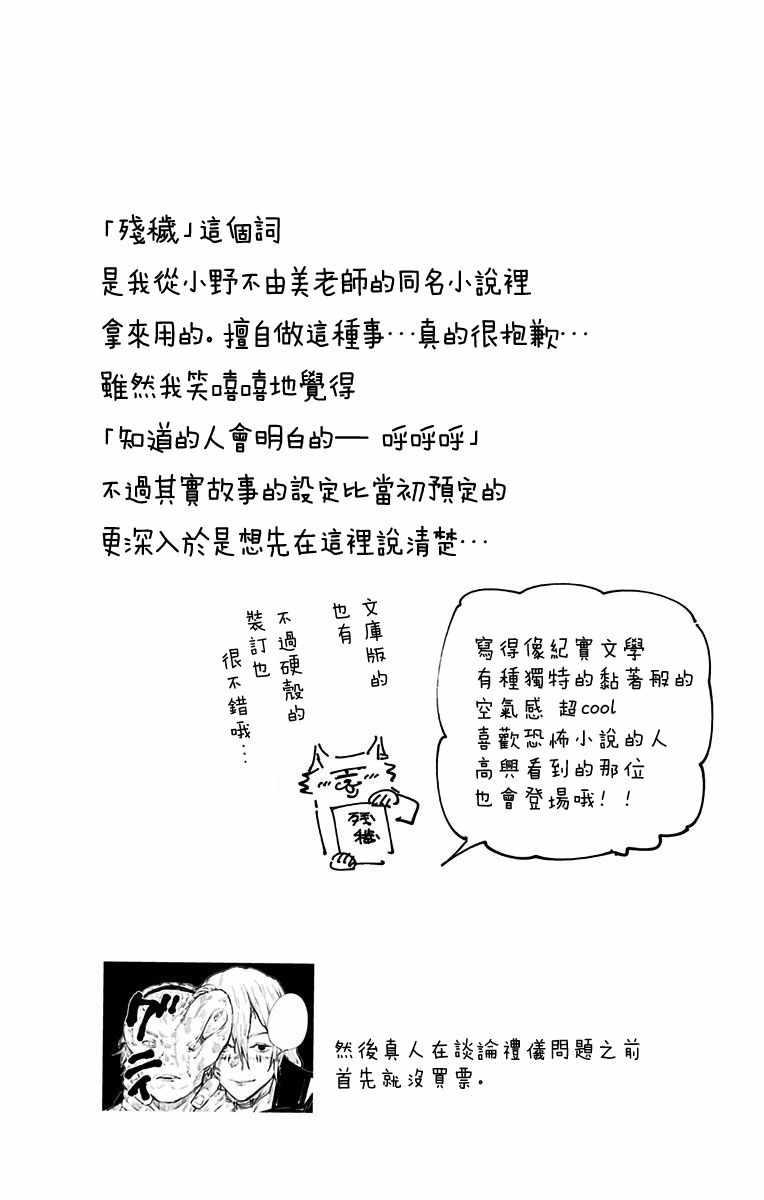 「殘穢」這個詞
是我從小野不由美老師的同名小說裡
拿來用的。擅自做這種事…真的很抱歉…
雖然我笑嘻嘻地覺得
「知道的人會明白的── 呼呼呼」
不過其實故事的設定比當初預定的
更深入於是想先在這裡說清楚…
文庫版的
也有
不過硬殼的
裝訂也
很不錯哦…
寫得像紀實文學
有種獨特的黏著般的
空氣感 超cool
喜歡恐怖小說的人
高興看到的那位
也會登場哦！！
殘
穢
グ
ニィ
然後真人在談論禮儀問題之前
首先就沒買票。